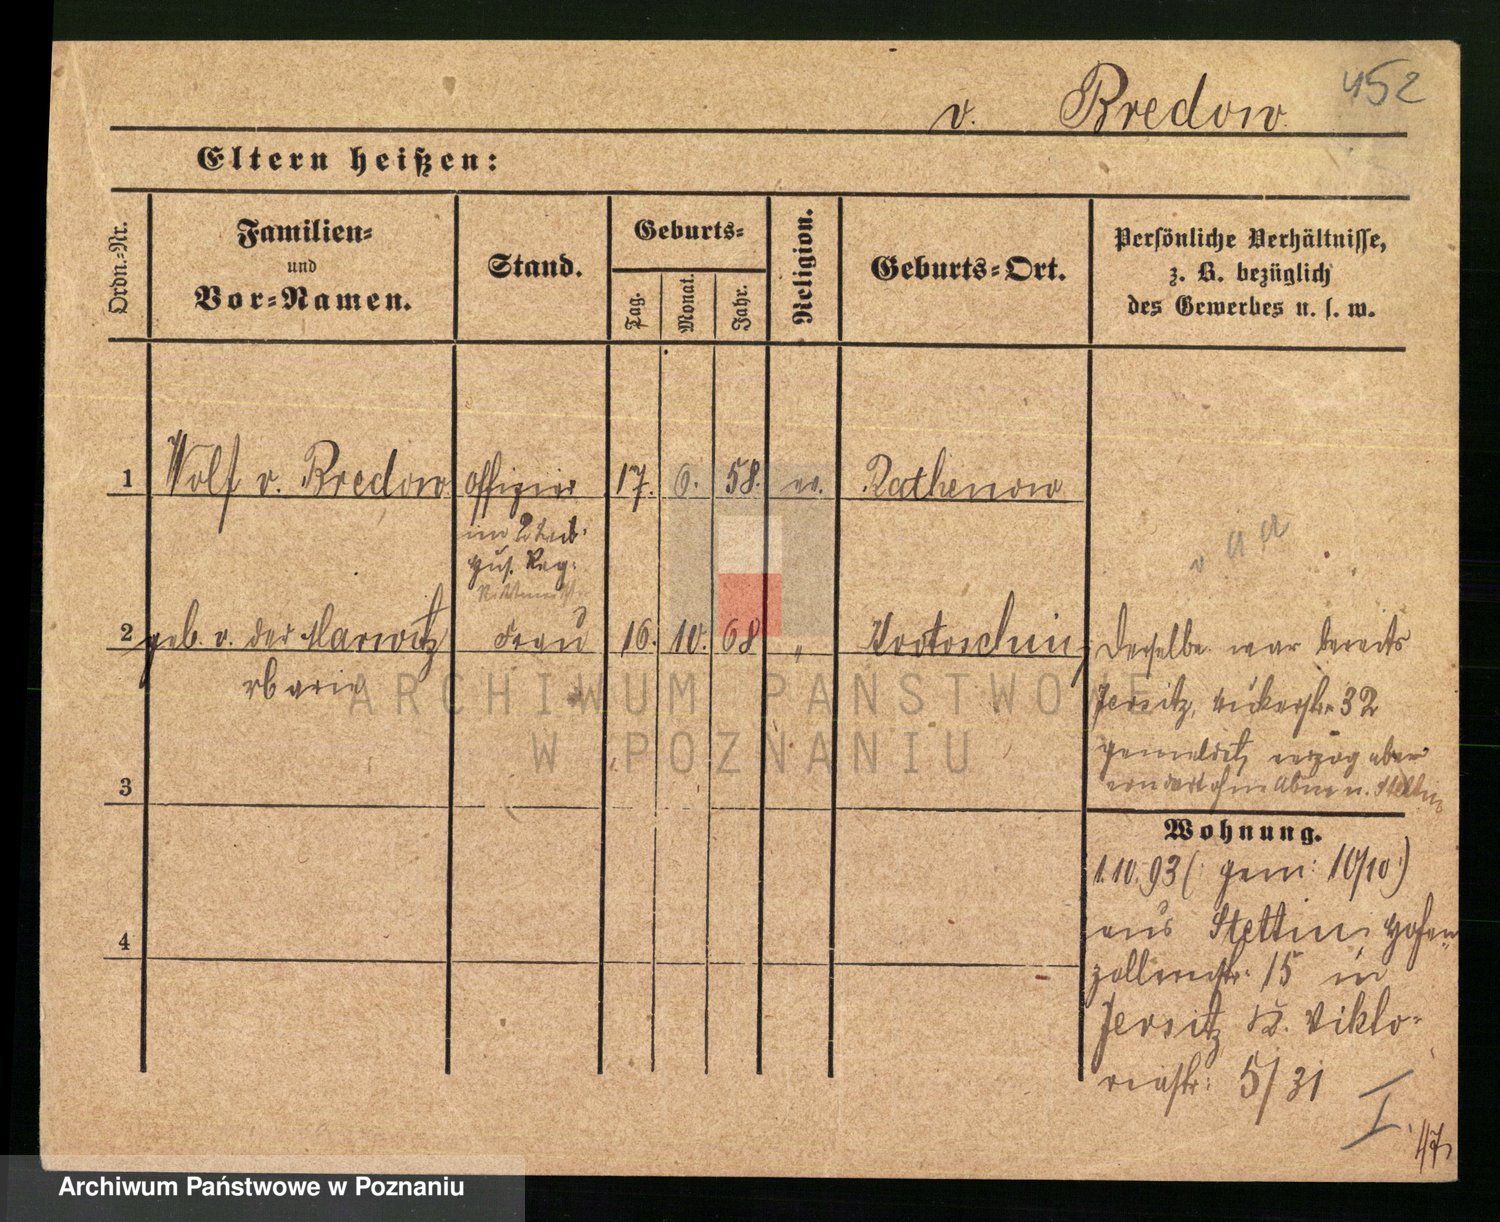 452
v. Bredow
Eltern heißen:
Ordn.-Nr.
Familien-
und
Vor-Namen.
Stand.
Geburts-
Tag.
Monat.
Jahr.
Religion.
Geburts-Ort.
Persönliche Verhältnisse,
z. B. bezüglich
des Gewerbes u. s. w.
1 Wolf v. Bredow Offizier 17. 6. 58. ev. Rathenow
im 2 Leib
Hus. Reg:
v a a
2 geb. v. der Marwitz Frau 16. 10. 68 " Krotoschin
Derselbe war bereits
Jersitz, 32
gemeldet, verzog aber
von dort ohne Abm. n. Stettin
3
Wohnung.
1.10.93 (gem: 10/10)
aus Stettin, Hohen-
zollernstr. 15 in
4
Jersitz K. Vikto-
riastr: 5/31
I.
1/7
ARCHIWUM PAŃSTWOWE
W POZNANIU
Archiwum Państwowe w Poznaniu